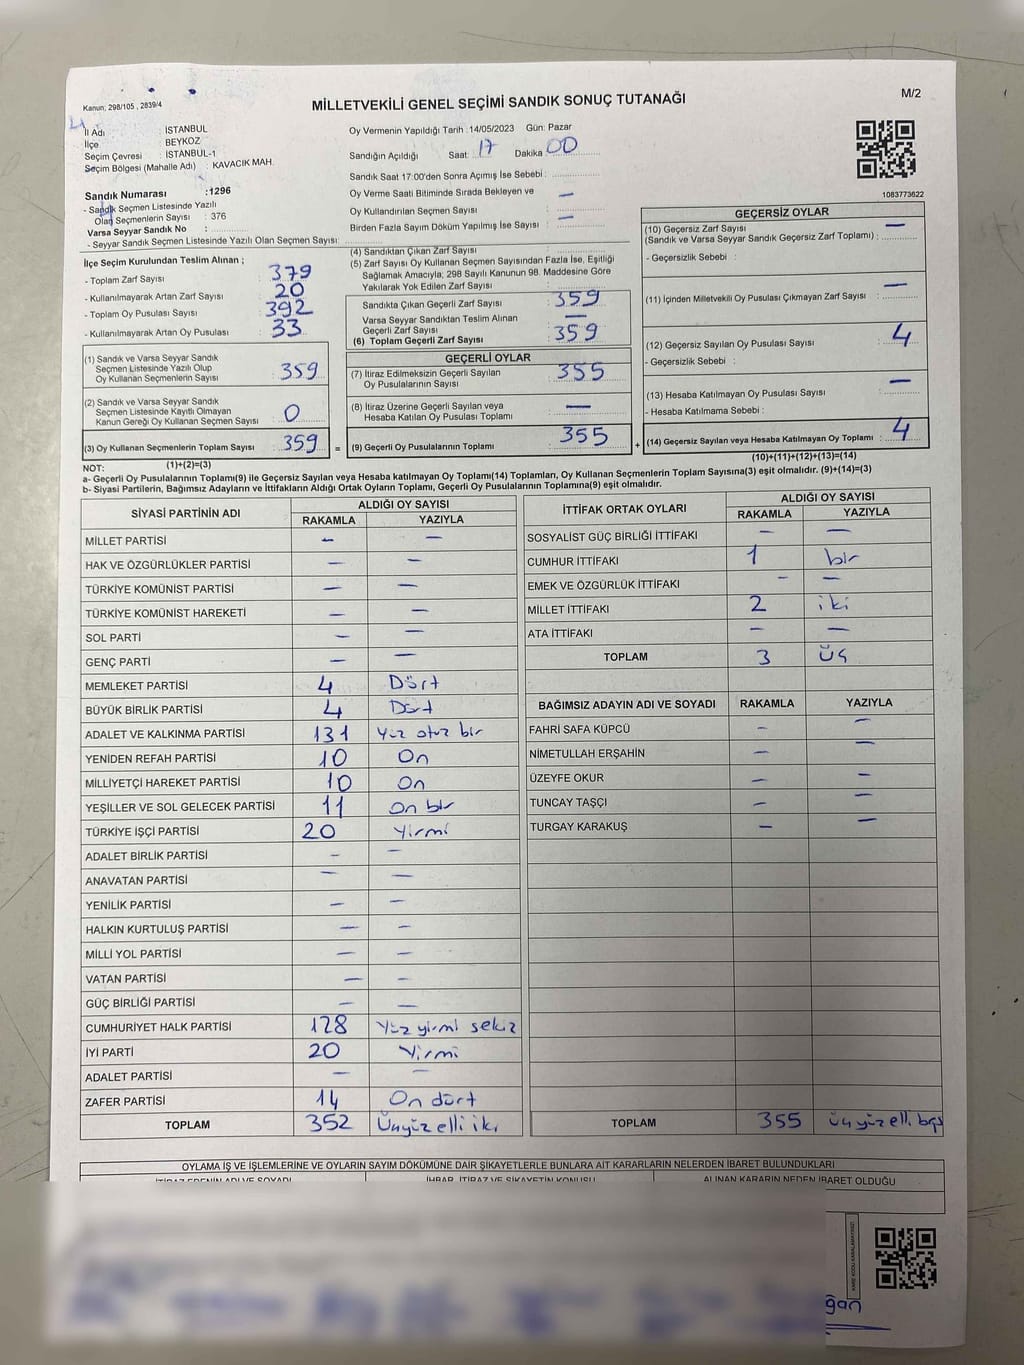 Kanun, 298/105 , 2839/4
MİLLETVEKİLİ GENEL SEÇİMİ SANDIK SONUÇ TUTANAĞI
M/2
İl Adı : İSTANBUL
İlçe : BEYKOZ
Seçim Çevresi : İSTANBUL-1
Seçim Bölgesi (Mahalle Adı) : KAVACIK MAH.
Oy Vermenin Yapıldığı Tarih :14/05/2023 Gün: Pazar
Sandığın Açıldığı Saat: 17 Dakika 00
Sandık Saat 17:00'den Sonra Açımış İse Sebebi :
Oy Verme Saati Bitiminde Sırada Bekleyen ve
Oy Kullandırılan Seçmen Sayısı : —
Birden Fazla Sayım Döküm Yapılmış İse Sayısı : —
1083773622
Sandık Numarası :1296
- Sandık Seçmen Listesinde Yazılı
Olan Seçmenlerin Sayısı : 376
Varsa Seyyar Sandık No :
- Seyyar Sandık Seçmen Listesinde Yazılı Olan Seçmen Sayısı:
İlçe Seçim Kurulundan Teslim Alınan ;
- Toplam Zarf Sayısı : 379
- Kullanılmayarak Artan Zarf Sayısı : 20
- Toplam Oy Pusulası Sayısı : 392
- Kullanılmayarak Artan Oy Pusulası : 33
(1) Sandık ve Varsa Seyyar Sandık
Seçmen Listesinde Yazılı Olup
Oy Kullanan Seçmenlerin Sayısı : 359
(2) Sandık ve Varsa Seyyar Sandık
Seçmen Listesinde Kayıtlı Olmayan
Kanun Gereği Oy Kullanan Seçmen Sayısı : 0
(3) Oy Kullanan Seçmenlerin Toplam Sayısı : 359 =
(1)+(2)=(3)
(4) Sandıktan Çıkan Zarf Sayısı :
(5) Zarf Sayısı Oy Kullanan Seçmen Sayısından Fazla İse, Eşitliği
Sağlamak Amacıyla; 298 Sayılı Kanunun 98. Maddesine Göre
Yakılarak Yok Edilen Zarf Sayısı :
Sandıkta Çıkan Geçerli Zarf Sayısı : 359
Varsa Seyyar Sandıktan Teslim Alınan
Geçerli Zarf Sayısı : —
(6) Toplam Geçerli Zarf Sayısı : 359
GEÇERLİ OYLAR
(7) İtiraz Edilmeksizin Geçerli Sayılan
Oy Pusulalarının Sayısı : 355
(8) İtiraz Üzerine Geçerli Sayılan veya
Hesaba Katılan Oy Pusulası Toplamı : —
(9) Geçerli Oy Pusulalarının Toplamı : 355 +
GEÇERSİZ OYLAR
(10) Geçersiz Zarf Sayısı
(Sandık ve Varsa Seyyar Sandık Geçersiz Zarf Toplamı) : —
- Geçersizlik Sebebi :
(11) İçinden Milletvekili Oy Pusulası Çıkmayan Zarf Sayısı : —
(12) Geçersiz Sayılan Oy Pusulası Sayısı : 4
- Geçersizlik Sebebi :
(13) Hesaba Katılmayan Oy Pusulası Sayısı : —
- Hesaba Katılmama Sebebi :
(14) Geçersiz Sayılan veya Hesaba Katılmayan Oy Toplamı : 4
(10)+(11)+(12)+(13)=(14)
NOT:
a- Geçerli Oy Pusulalarının Toplamı(9) ile Geçersiz Sayılan veya Hesaba katılmayan Oy Toplamı(14) Toplamları, Oy Kullanan Seçmenlerin Toplam Sayısına(3) eşit olmalıdır. (9)+(14)=(3)
b- Siyasi Partilerin, Bağımsız Adayların ve İttifakların Aldığı Ortak Oyların Toplamı, Geçerli Oy Pusulalarının Toplamına(9) eşit olmalıdır.
SİYASİ PARTİNİN ADI ALDIĞI OY SAYISI
RAKAMLA YAZIYLA
MİLLET PARTİSİ — —
HAK VE ÖZGÜRLÜKLER PARTİSİ — —
TÜRKİYE KOMÜNİST PARTİSİ — —
TÜRKİYE KOMÜNİST HAREKETİ — —
SOL PARTİ — —
GENÇ PARTİ — —
MEMLEKET PARTİSİ 4 Dört
BÜYÜK BİRLİK PARTİSİ 4 Dört
ADALET VE KALKINMA PARTİSİ 131 Yüz otuz bir
YENİDEN REFAH PARTİSİ 10 On
MİLLİYETÇİ HAREKET PARTİSİ 10 On
YEŞİLLER VE SOL GELECEK PARTİSİ 11 On bir
TÜRKİYE İŞÇİ PARTİSİ 20 Yirmi
ADALET BİRLİK PARTİSİ — —
ANAVATAN PARTİSİ — —
YENİLİK PARTİSİ — —
HALKIN KURTULUŞ PARTİSİ — —
MİLLİ YOL PARTİSİ — —
VATAN PARTİSİ — —
GÜÇ BİRLİĞİ PARTİSİ — —
CUMHURİYET HALK PARTİSİ 128 Yüz yirmi sekiz
İYİ PARTİ 20 Yirmi
ADALET PARTİSİ — —
ZAFER PARTİSİ 14 On dört
TOPLAM 352 Üçyüz elli iki
İTTİFAK ORTAK OYLARI ALDIĞI OY SAYISI
RAKAMLA YAZIYLA
SOSYALİST GÜÇ BİRLİĞİ İTTİFAKI — —
CUMHUR İTTİFAKI 1 bir
EMEK VE ÖZGÜRLÜK İTTİFAKI — —
MİLLET İTTİFAKI 2 iki
ATA İTTİFAKI — —
TOPLAM 3 Üç
BAĞIMSIZ ADAYIN ADI VE SOYADI RAKAMLA YAZIYLA
FAHRİ SAFA KÜPCÜ — —
NİMETULLAH ERŞAHİN — —
ÜZEYFE OKUR — —
TUNCAY TAŞÇI — —
TURGAY KARAKUŞ — —
TOPLAM 355 üçyüz elli beş
OYLAMA İŞ VE İŞLEMLERİNE VE OYLARIN SAYIM DÖKÜMÜNE DAİR ŞİKAYETLERLE BUNLARA AİT KARARLARIN NELERDEN İBARET BULUNDUKLARI
İTİRAZ EDENİN ADI VE SOYADI İHBAR, İTİRAZ VE ŞİKAYETİN KONUSU ALINAN KARARIN NEDEN İBARET OLDUĞU
KARE KODU KARALAMAYINIZ!